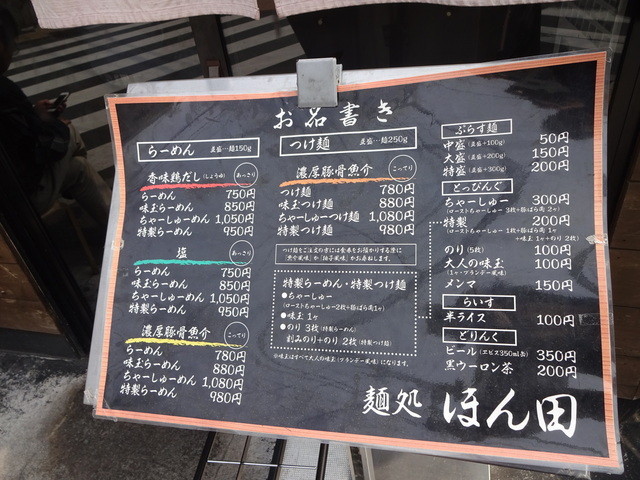 お名書き
らーめん 並盛…麺150g
香味鶏だし(しょうゆ) あっさり
らーめん 750円
味玉らーめん 850円
ちゃーしゅーめん 1,050円
特製らーめん 950円
塩 あっさり
らーめん 750円
味玉らーめん 850円
ちゃーしゅーめん 1,050円
特製らーめん 950円
濃厚豚骨魚介 こってり
らーめん 780円
味玉らーめん 880円
ちゃーしゅーめん 1,080円
特製らーめん 980円
つけ麺 並盛…麺250g
濃厚豚骨魚介 こってり
つけ麺 780円
味玉つけ麺 880円
ちゃーしゅーつけ麺 1,080円
特製つけ麺 980円
つけ麺をご注文の方には食券をお預かりする際に
「魚介風味」か「柚子風味」かお尋ねします。
特製らーめん・特製つけ麺
●ちゃーしゅー
(ロースト ちゃーしゅー2枚+豚ばら肉1ヶ)
●味玉 1ヶ
●のり 3枚(特製らーめん)
刻みのり+のり 2枚(特製つけ麺)
※味玉はすべて大人の味玉(ブランデー風味)になります。
ぷらす麺
中盛(並盛+100g) 50円
大盛(並盛+200g) 150円
特盛(並盛+300g) 200円
とっぴんぐ
ちゃーしゅー 300円
(ローストちゃーしゅー 3枚+豚ばら肉 2ヶ)
特製 200円
(ローストちゃーしゅー 1枚+豚ばら肉 1ヶ
+味玉 1ヶ+のり 2枚)
のり(5枚) 100円
大人の味玉 100円
(1ヶ・ブランデー風味)
メンマ 150円
らいす
半ライス 100円
どりんく
ビール(エビス350ml缶) 350円
黒ウーロン茶 200円
麺処 ほん田